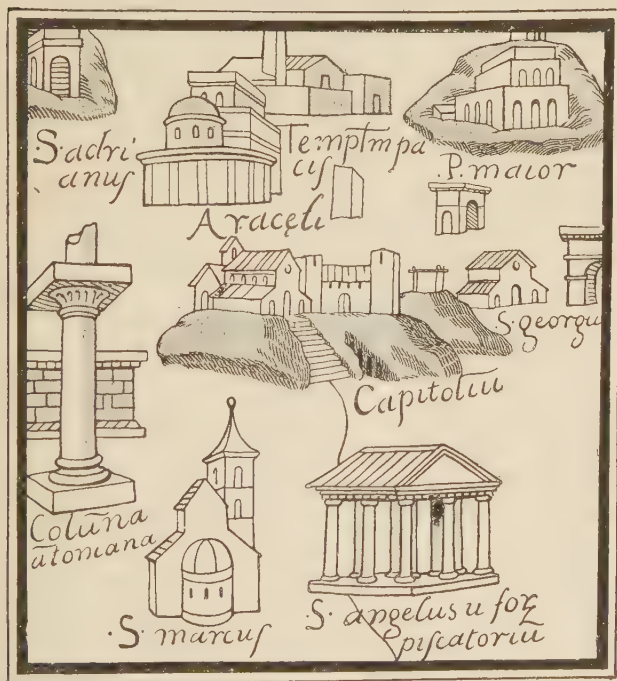 S. adri
anus
Templm pa
cis
P. maior
Aracęli
S. georgii
Capitoliū
Colūna
ātoniana
.S. marcus
.S. angelus ī foꝝ
piscatoriū